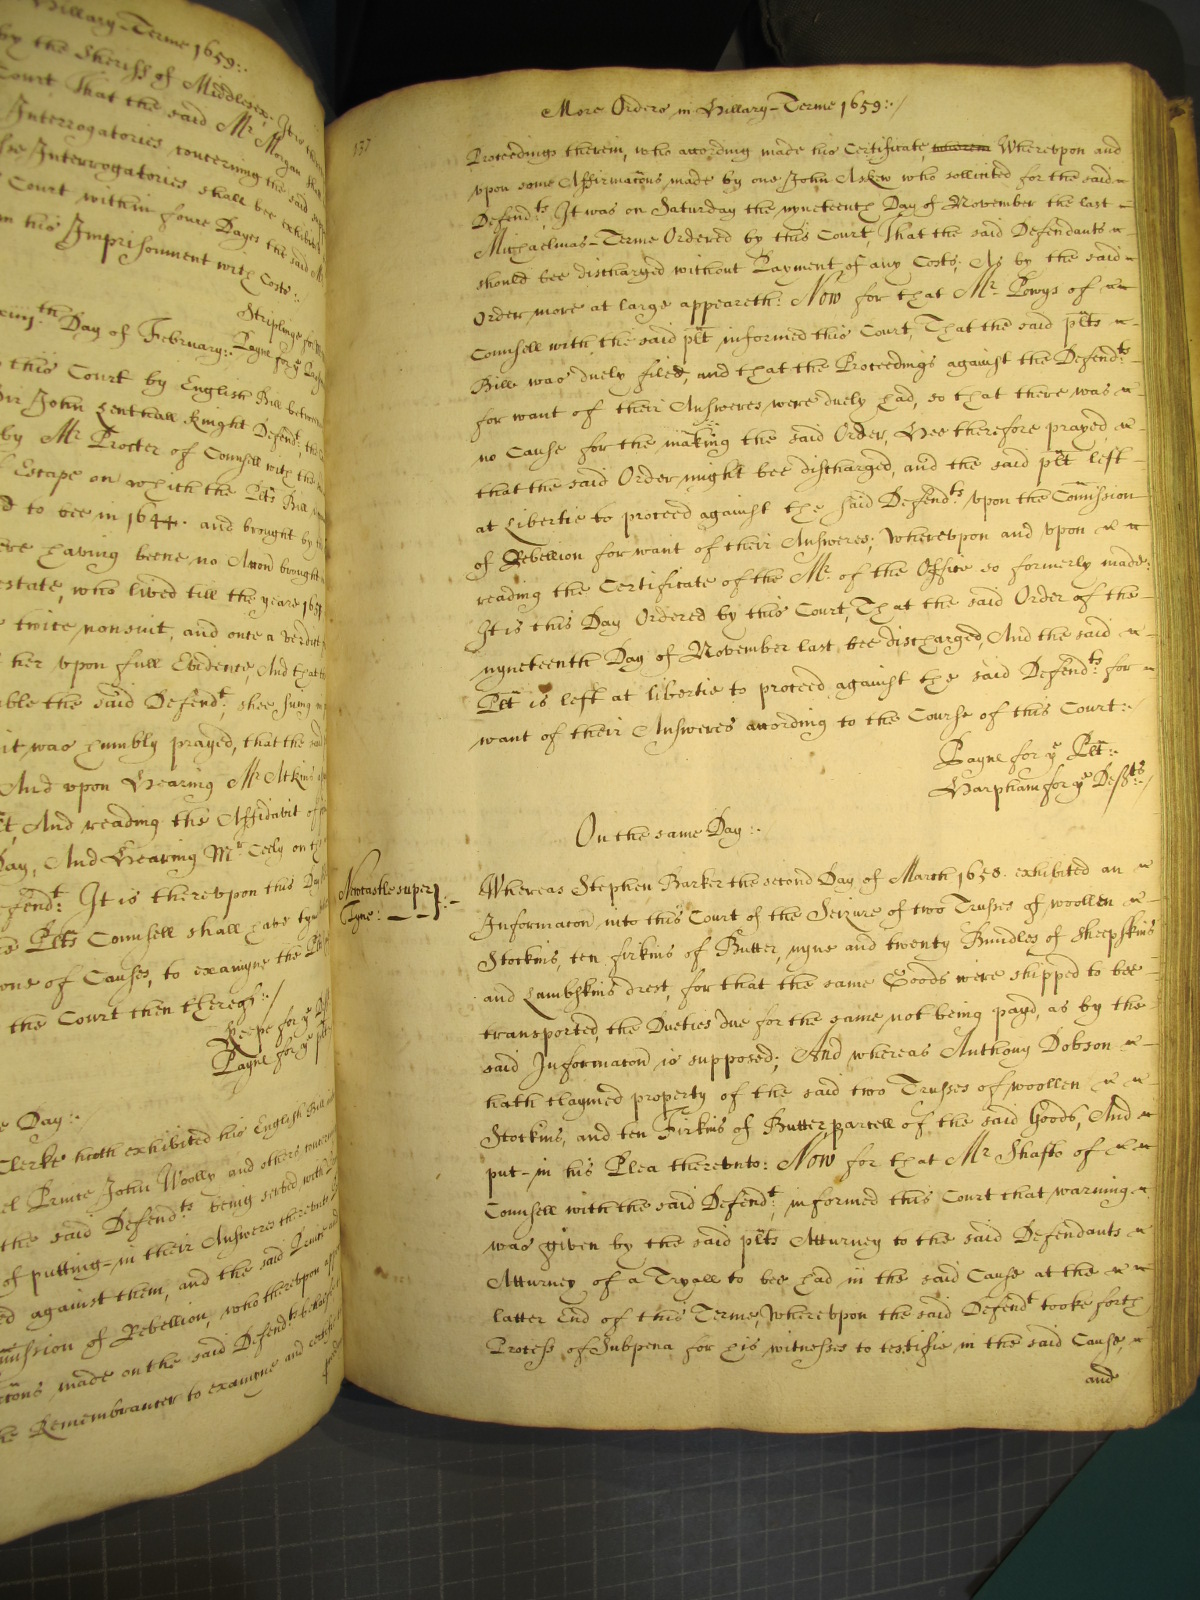 Hillary-Terme 1659:.
by the Sheriff of Middlesex, It is
Court That the said Mr. Morgan
Interrogatories concerning the said
Interrogatories shall bee exhibited
Court within foure Dayes the said
his Imprisonment with Costs:.
Striplinge for
Payne for ye
Day of February:.
this Court by English Bill betweene
Sir John Lenthall Knight Defendt.
by Mr. Procter of Counsell with the
Escape on which the Plts Bill
to bee in 1644. and brought by
having beene no Accon brought
estate, who lived till the yeare 1651
twice nonsuit, and once a verdict
her vpon full Evidence, And that
the said Defendt, shee suing
it was humbly prayed, that the said
And vpon Hearing Mr Atkins
And reading the Affidavit of
Day, And Hearing Mr Ceely on the
It is therevpon this Day
Plts Counsell shall have
one of Causes, to examyne the
the Court then thereof:./
Keepe for ye
Payne for ye plt
Day:./
Clerke hath exhibited his English Bill
Prince John Woolly and others
the said Defendts being served with
of putting-in their Answeres therevnto
against them, and the said
Commission of Rebellion, who therevpon
made on the said Defendts behalfe
Remembrancer to examyne and certifie
137
More Orders in Hillary-Terme 1659:./
Proceedings therein, who according made his Certificate, wherein Wherevpon and
vpon some Affirmacons made by one John Askew who sollicited for the said
Defendts, It was on Saturday the nyneteenth Day of November the last
Michaelmas-Terme Ordered by this Court, That the said Defendants
should bee discharged without Payment of any Costs; As by the said
Order more at large appeareth: Now for that Mr. Powys of
Counsell with the said plt informed this Court, That the said plts
Bill was duely filed, and that the Proceedings against the Defendts
for want of their Answeres were duely had, so that there was
no Cause for the making the said Order, Hee therefore prayed
that the said Order might bee discharged, and the said plt left
at Libertie to proceed against the said Defendts vpon the Comission
of Rebellion for want of their Answeres; Wherevpon and vpon
reading the Certificate of the Mr. of the Office so formerly made:
It is this Day Ordered by this Court, That the said Order of the
nyneteenth Day of November last bee discharged, And the said
Plt is left at libertie to proceed against the said Defendts for
want of their Answeres according to the Course of this Court:./
Payne for ye Plt:.
Harpham for ye Defts:./
On the same Day:.
Newcastle super
Tyne:
Whereas Stephen Barker the second Day of March 1658. exhibited an
Informacon into this Court of the Seizure of two Trusses of woollen
Stockins, ten firkins of Butter, nyne and twenty Bundles of Sheepskins
and Lambskins drest, for that the same Goods were shipped to bee
transported, the Dueties due for the same not being payd, as by the
said Informacon is supposed; And whereas Anthony Dobson
hath claymed property of the said two Trusses of woollen
Stockins, and ten Firkins of Butter parcell of the said Goods, And
put-in his Plea therevnto: Now for that Mr Shafto of
Counsell with the said Defendt informed this Court that warning
was given by the said plts Atturney to the said Defendants
Atturney of a Tryall to bee had in the said Cause at the
latter End of this Terme, Wherevpon the said Defendt tooke forth
Process of Subpena for his witnesses to testifie in the said Cause,
and